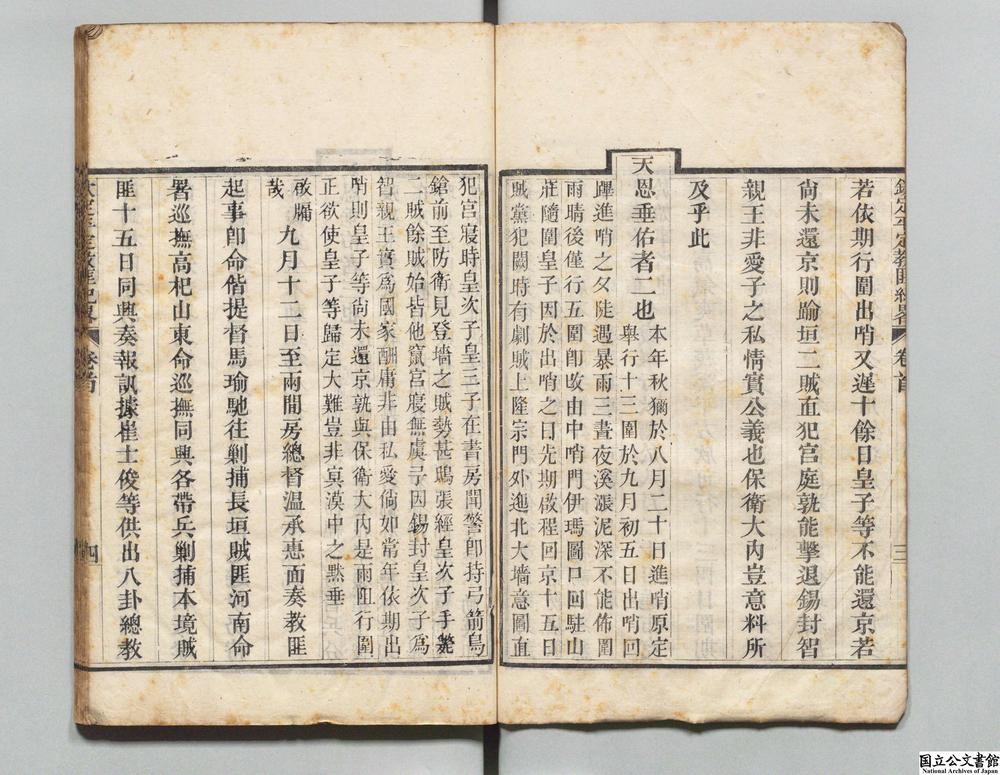 欽定平定教匪紀畧 卷首 三
若依期行圍出哨又遲十餘日皇子等不能還京若
尚未還京則踰垣二賊直犯宮庭孰能擊退錫封智
親王非愛子之私情實公義也保衛大內豈意料所
及乎此
天恩垂佑者二也
本年秋獮於八月二十日進哨原定
舉行十三圍於九月初五日出哨回
蹕進哨之夕陡遇暴雨三晝夜溪漲泥深不能佈圍
雨晴後僅行五圍卽改由中哨門伊瑪圖口回駐山
莊隨圍皇子因於出哨之日先期啟程回京十五日
賊黨犯闕時有劇賊上隆宗門外迤北大墻意圖直
犯宮寢時皇次子皇三子在書房聞警卽持弓箭鳥
鎗前至防衛見登墻之賊勢甚鴟張經皇次子手斃
二賊餘賊始皆他竄宮寢無虞予因錫封皇次子爲
智親王實爲國家酬庸非由私愛倘如常年依期出
哨則皇子等尚未還京孰與保衛大內是雨阻行圍
正欲使皇子等歸定大難豈非冥漠中之默垂
啟牖
哉
九月十二日至兩間房總督温承惠面奏教匪
起事卽命偕提督馬瑜馳往剿捕長垣賊匪河南命
署巡撫高杞山東命巡撫同興各帶兵剿捕本境賊
匪十五日同興奏報訊據崔士俊等供出八卦總教
欽定平定教匪紀畧 卷首 四
国立公文書館
National Archives of Japan